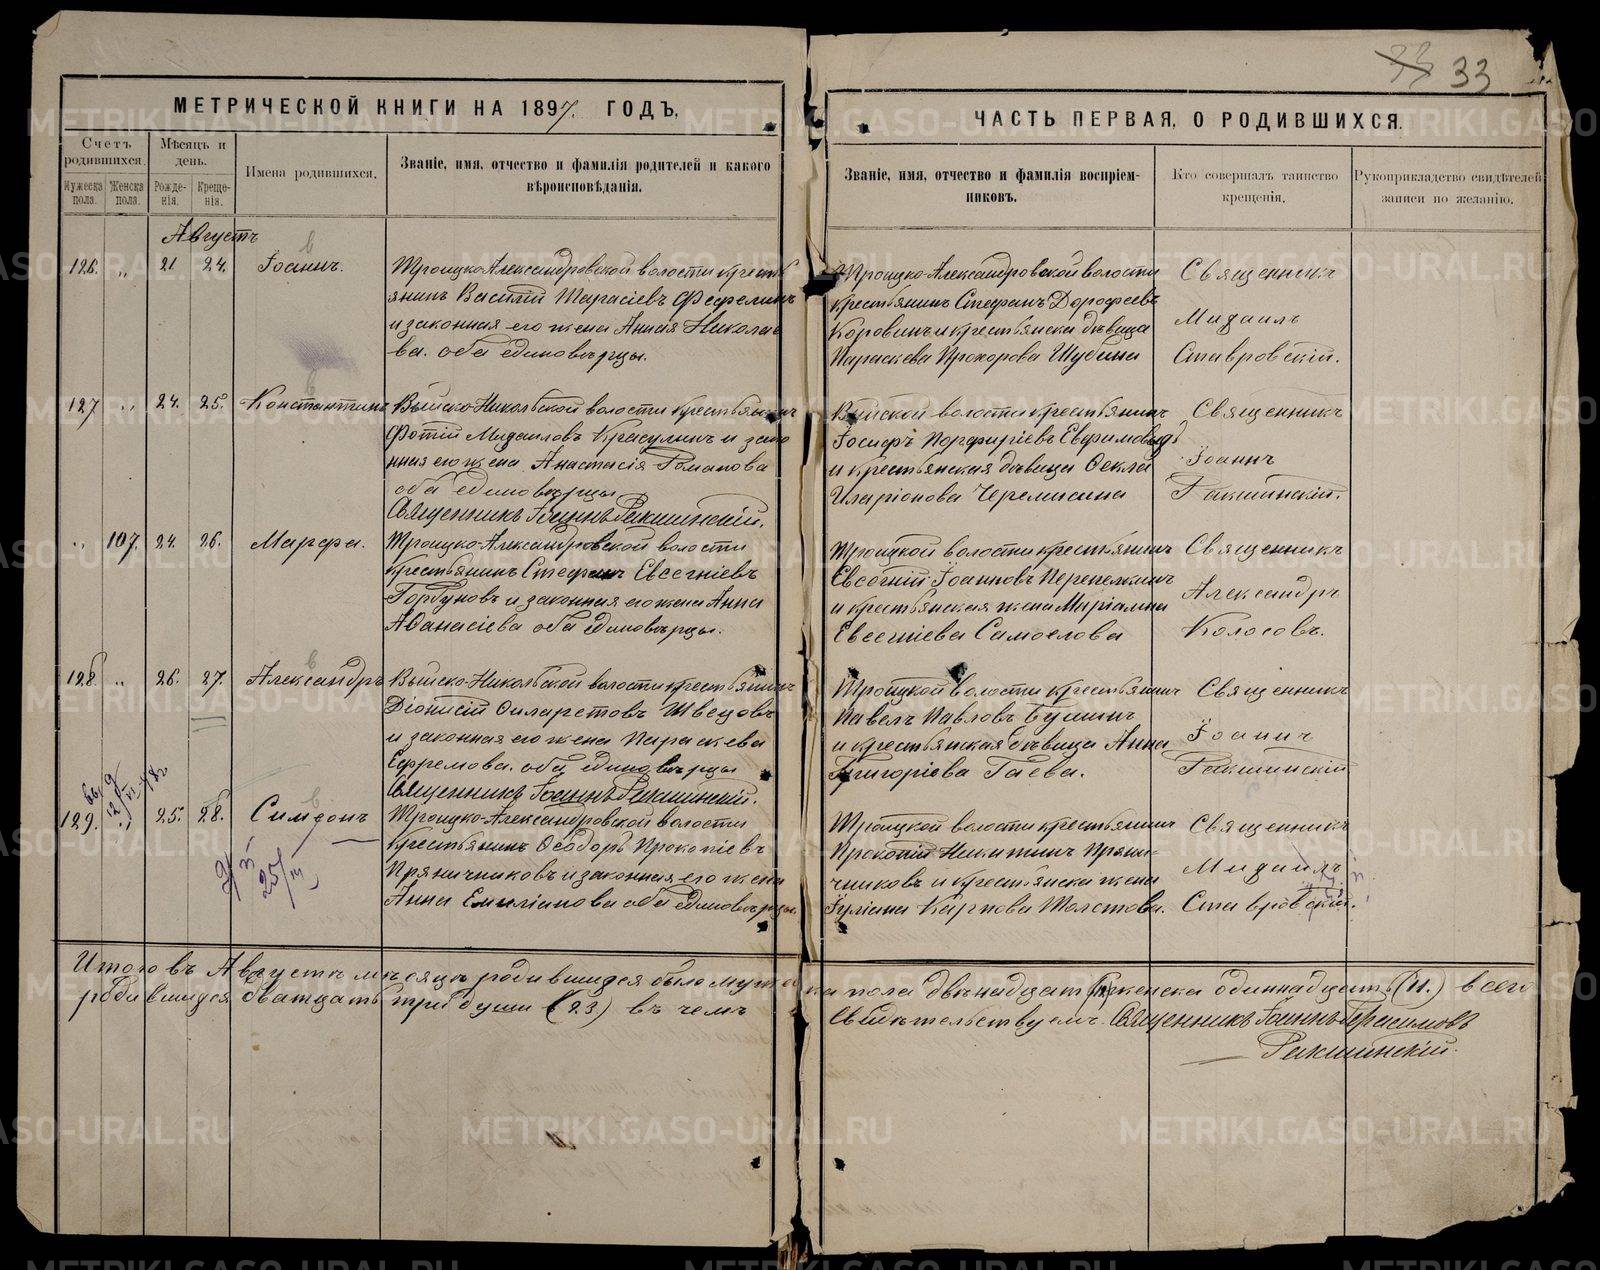 33 33
МЕТРИЧЕСКОЙ КНИГИ НА 1897. ГОДЪ,
ЧАСТЬ ПЕРВАЯ, О РОДИВШИХСЯ.
Счетъ родившихся.
Мужеска пола.
Женска пола.
Мѣсяцъ и день.
Рожденія.
Крещенія.
Имена родившихся.
Званіе, имя, отчество и фамилія родителей и какого
вѣроисповѣданія.
Званіе, имя, отчество и фамилія воспріем-
никовъ.
Кто совершалъ таинство
крещенія.
Рукоприкладство свидѣтелей
записи по желанію.
Августъ
126. " 21 24. Іоаннъ.
Троицко-Александровской волости кресть
янинъ Василій Тарасіевъ Фефелинъ
и законная его жена Анна Николае
ва. оба единовѣрцы.
Троицко-Александровской волости
крестьянинъ Стефанъ Дорофеевъ
Коровинъ и крестьянска дѣвица
Параскева Прохорова Шубина
Священникъ
Михаилъ
Ставровскій.
127 " 24. 25. Константинъ
Выйско-Никольской волости крестьянинъ
Фотій Михаиловъ Красулинъ и зако
нная его жена Анастасія Романова
оба единовѣрцы
Священникъ Іоаннъ Ракшинскій.
Выйской волости крестьянинъ
Іосифъ Порфиріевъ Евфимовыхъ
и крестьянская дѣвица Ѳекла
Иларіонова Черемисина
Священникъ
Іоаннъ
Ракшинскій.
" 107. 24. 26. Марѳа.
Троицко-Александровской волости
крестьянинъ Стефанъ Евсегніевъ
Горбуновъ и законная его жена Анна
Аѳанасіева оба единовѣрцы.
Троицкой волости крестьянинъ
Евсегній Іоанновъ Перепелкинъ
и крестьянская жена Маріамна
Евсегніева Самоелова
Священникъ
Александръ
Колосовъ.
128. " 26. 27. Александръ
Выйско-Никольской волости крестьянинъ
Діонисій Филаретовъ Швецовъ
и законная его жена Параскева
Ефремова. оба единовѣрцы
Священникъ Іоаннъ Ракшинскій.
Троицкой волости крестьянинъ
Павелъ Павловъ Бушинъ
и крестьянская дѣвица Анна
Григоріева Гаева.
Священникъ
Іоаннъ
Ракшинскій
129. " 25. 28. Симеонъ
Троицко-Александровской волости
Крестьянинъ Ѳеодоръ Прокопіевъ
Пряничниковъ и законная его жена
Анна Емиліанова оба единовѣрцы.
Троицкой волости крестьянинъ
Прокопій Никитинъ Пряни-
чниковъ и крестьянска жена
Іуліана Карпова Толстова.
Священникъ
Михаилъ
Ставровскій.
Итого въ Августѣ мѣсяцѣ родившихся было мужес
ка пола двѣнадцать (12) женска одиннадцать (11.) всего
родившихся двадцать три души (23) въ чемъ
Свидѣтельствуемъ. Священникъ Іоаннъ Герасимовъ
Ракшинскій.
METRIKI.GASO-URAL.RU